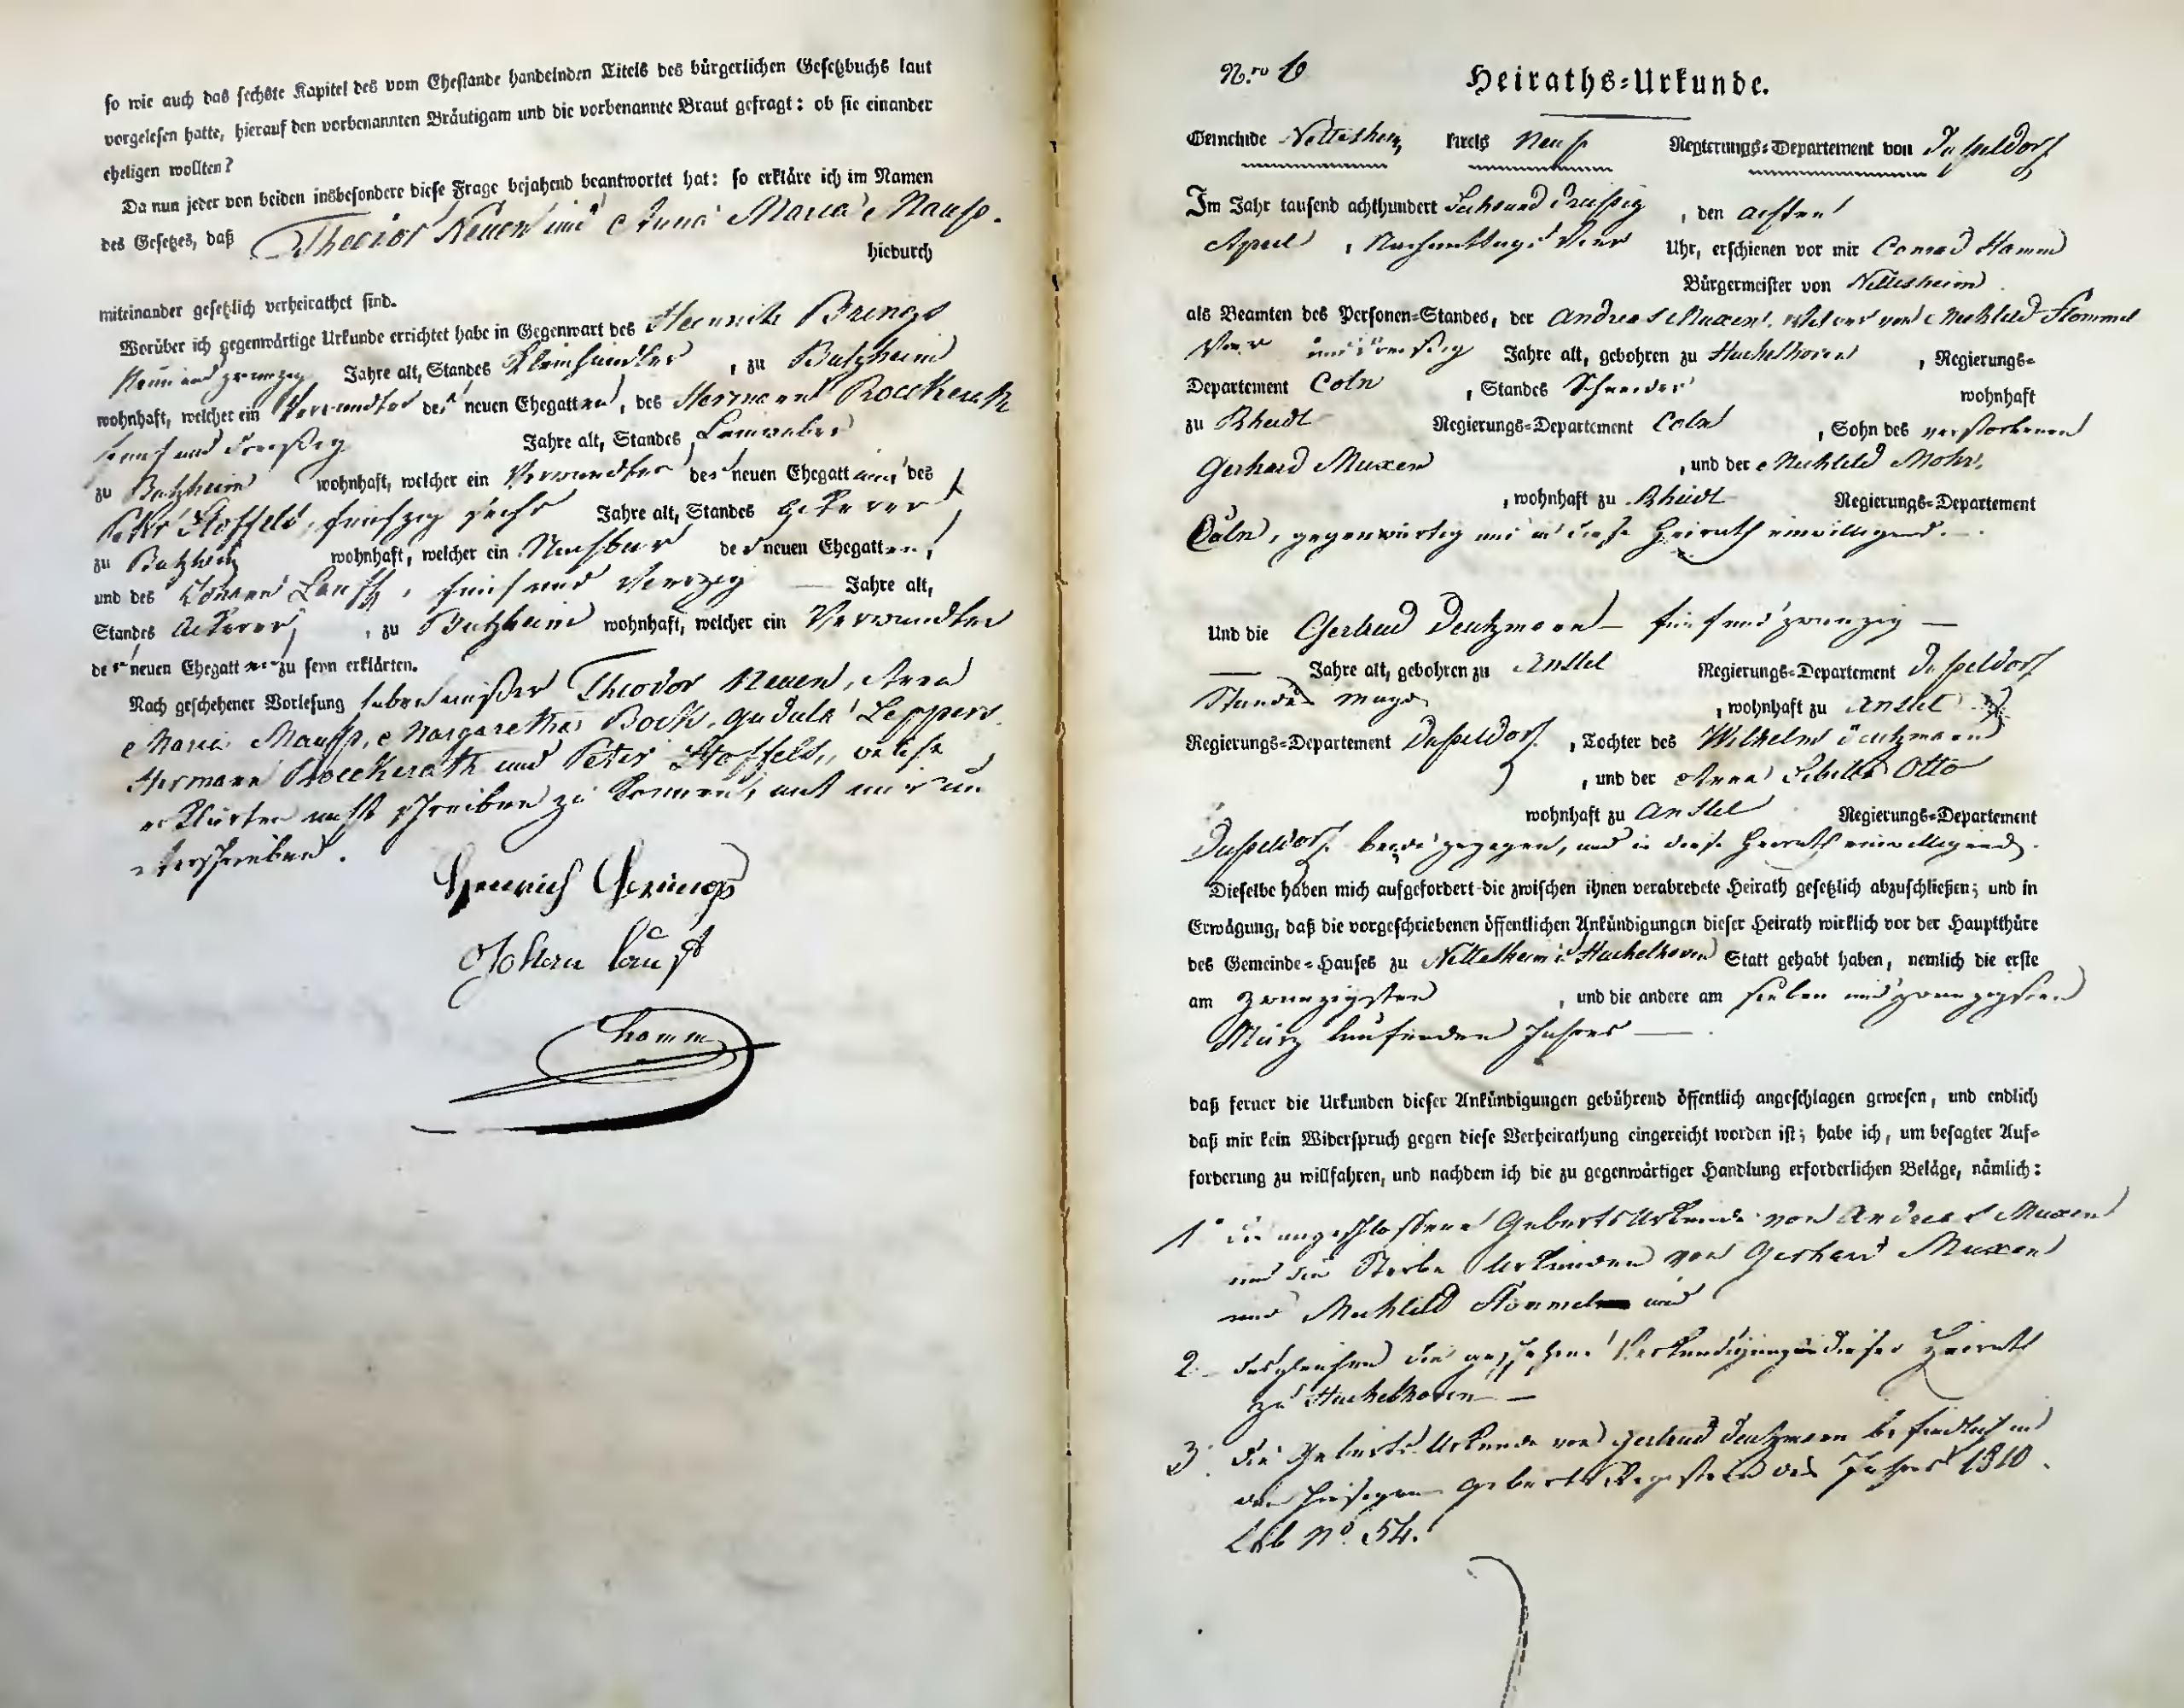 so wie auch das sechste Kapitel des vom Ehestande handelnden Titels des bürgerlichen Gesetzbuchs laut
vorgelesen hatte, hierauf den vorbenannten Bräutigam und die vorbenannte Braut gefragt: ob sie einander
eheligen wollten?
Da nun jeder von beiden insbesondere diese Frage bejahend beantwortet hat: so erkläre ich im Namen
des Gesetzes, daß Theodor Neuen und Anna Maria Maußs.
hiedurch
miteinander gesetzlich verheirathet sind.
Worüber ich gegenwärtige Urkunde errichtet habe in Gegenwart des Heinrich Brings
Neun und zwanzig Jahre alt, Standes Kleinhändler, zu Butzheim
wohnhaft, welcher ein Verwandter der neuen Ehegatten, des Hermann Roeckerath
fünf und dreißig Jahre alt, Standes Leinweber
zu Butzheim wohnhaft, welcher ein Verwandter des neuen Ehegatten, des
Peter Stoffels, fünfzig sechs Jahre alt, Standes Ackerer
zu Butzheim wohnhaft, welcher ein Nachbar der neuen Ehegatten,
und des Johann Lauff, fünf und vierzig — Jahre alt,
Standes Ackerer, zu Butzheim wohnhaft, welcher ein Verwandter
der neuen Ehegatten zu seyn erklärten.
Nach geschehener Vorlesung haben außer Theodor Neuen, Anna
Maria Maußs, Margaretha Bock, Gudula Leppers
Hermann Roeckerath und Peter Stoffels, welche
erklärten nicht schreiben zu können, mit mir un
terschrieben.
Heinrich Brings
Johan Lauff
Hamm
N.ro 6
Heiraths-Urkunde.
Gemeinde Nettesheim, Kreis Neuß Regierungs-Departement von Dußeldorf
Im Jahr tausend achthundert Sechs und dreißig, den achten
April, Nachmittags Vier Uhr, erschienen vor mir Conrad Hamm
Bürgermeister von Nettesheim
als Beamten des Personen-Standes, der Andreas Muxen, Witwer von Mechtild Stommel
Vier und dreißig Jahre alt, gebohren zu Huchelhoven, Regierungs-
Departement Coln, Standes Schneider wohnhaft
zu Rheidt Regierungs-Departement Coln, Sohn des verstorbenen
Gerhard Muxen, und der Mechtild Mohr,
, wohnhaft zu Rheidt Regierungs-Departement
Cöln, gegenwärtig und in diese Heirath einwilligend.
Und die Gertrud Deutzmann — fünf und zwanzig —
— Jahre alt, gebohren zu Anstel Regierungs-Departement Dußeldorf
Standes Magd, wohnhaft zu Anstel
Regierungs-Departement Dußeldorf, Tochter des Wilhelm Deutzmann
, und der Anna Sibilla Otto
wohnhaft zu Anstel Regierungs-Departement
Dußeldorf beide zugegen, und in diese Heirath einwilligend.
Dieselbe haben mich aufgefordert die zwischen ihnen verabredete Heirath gesetzlich abzuschließen; und in
Erwägung, daß die vorgeschriebenen öffentlichen Ankündigungen dieser Heirath wirklich vor der Hauptthüre
des Gemeinde-Hauses zu Nettesheim & Huchelhoven Statt gehabt haben, nemlich die erste
am zwanzigsten, und die andere am sieben und zwanzigsten
März laufenden Jahres —
daß ferner die Urkunden dieser Ankündigungen gebührend öffentlich angeschlagen gewesen, und endlich
daß mir kein Widerspruch gegen diese Verheirathung eingereicht worden ist; habe ich, um besagter Auf-
forderung zu willfahren, und nachdem ich die zu gegenwärtiger Handlung erforderlichen Beläge, nämlich:
1. die angeschlossene Geburts Urkunde von Andreas Muxen
und die Sterbe Urkunden von Gerhard Muxen
und Mechtild Stommel und
2. desgleichen die geschehene Verkündigungen dieser Heirath
zu Huchelhoven —
3. die Geburts Urkunde von Gertrud Deutzmann befindlich in
den hiesigen Geburts Registern des Jahres 1810.
sub No. 54.